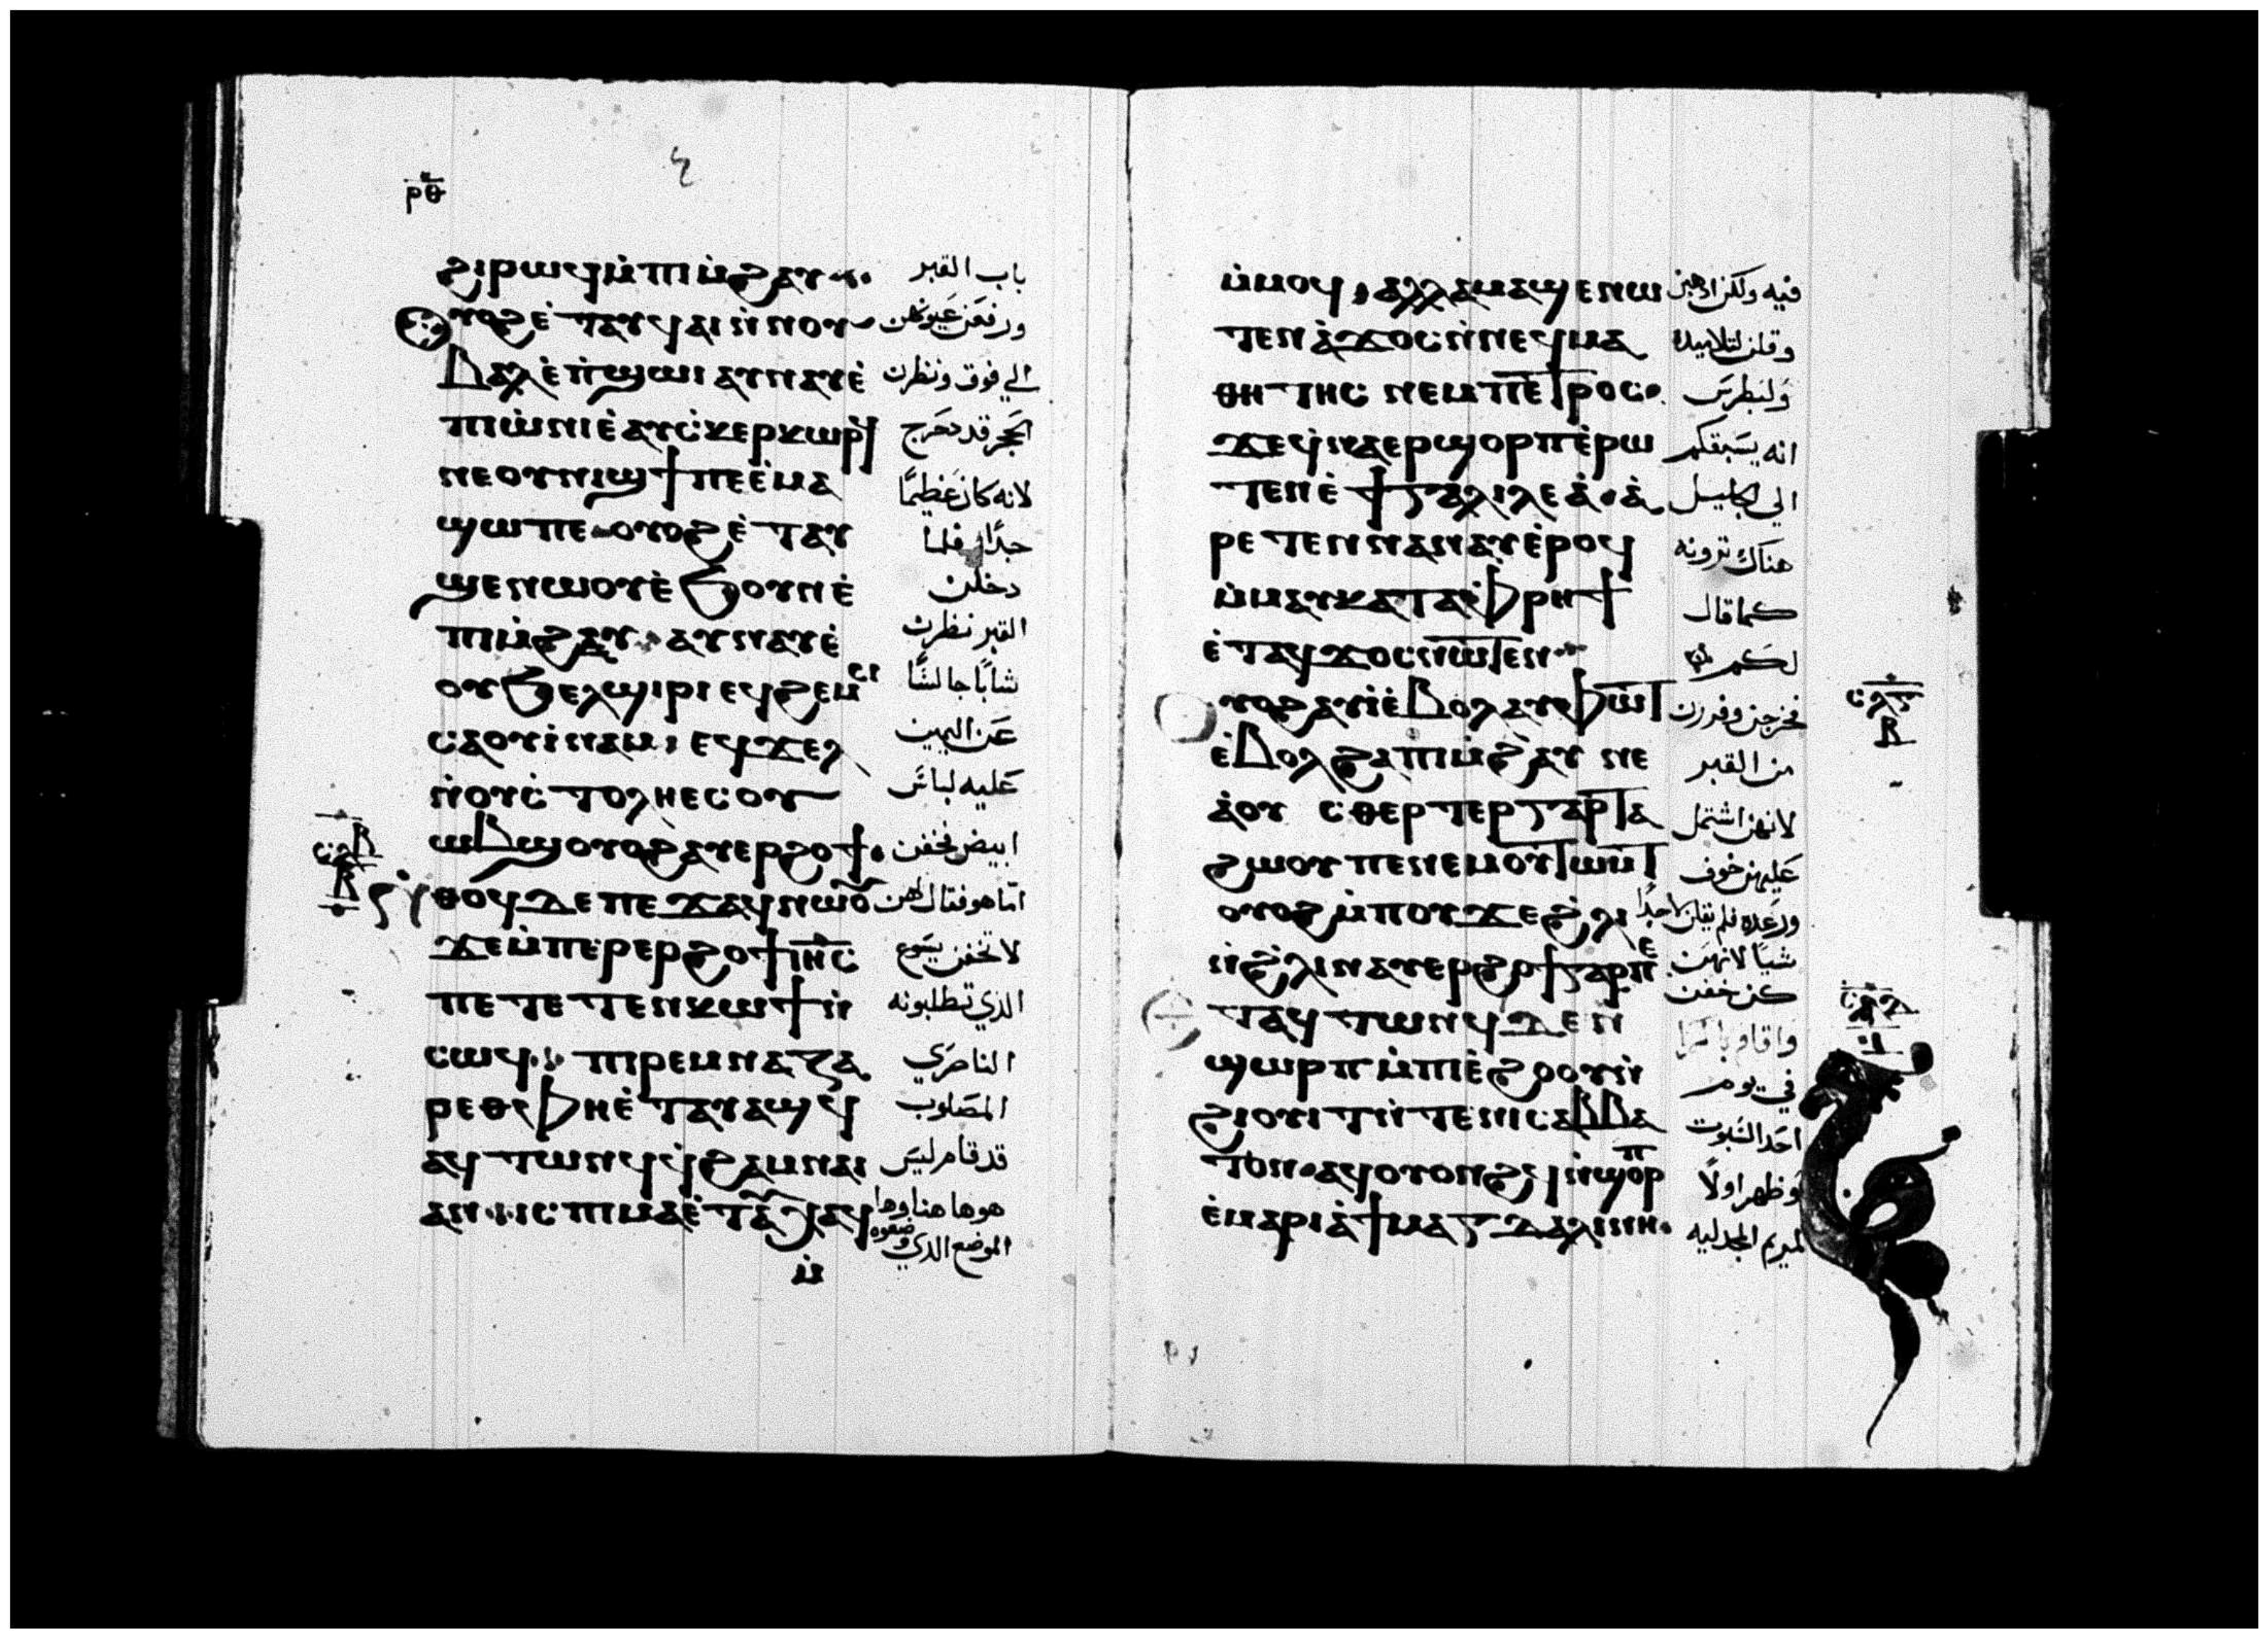 ⲣ̅ⲑ̅
ϩⲓⲣⲱϥ ⲙ̀ⲡⲓⲙ̀ϩⲁⲩ باب القبر
ⲟⲩⲟϩ ⲉ̀ⲧⲁⲩϥⲁⲓ ⲛ̀ⲛⲟⲩ ورفعن عيونهن
ⲃⲁⲗ ⲉ̀ⲡϣⲱⲓ ⲁⲩⲛⲁⲩ ⲉ̀ الي فوق ونظرن
ⲡⲓⲱ̀ⲛⲓ ⲉ̀ⲁⲩⲥ̀ⲕⲉⲣⲕⲱⲣϥ الحجر قد دحرج
ⲛⲉ ⲟⲩⲛⲓϣϯ ⲡⲉ ⲉ̀ⲙⲁ لانه كان عظيمًا
ϣⲱ ⲡⲉ ⲟⲩⲟϩ ⲉ̀ⲧⲁⲩ جدًا فلما
ϣⲉⲛⲱⲟⲩ ⲉ̀ϧⲟⲩⲛ ⲉ̀ دخلن
ⲡⲓⲙ̀ϩⲁⲩ ⲁⲩⲛⲁⲩ ⲉ̀ القبر نظرن
ⲟⲩϧⲉⲗϣⲓⲣⲓ ⲉϥϩⲉⲙⲥⲓ شابًا جالسًا
ⲥⲁⲟⲩⲓ̀ⲛⲁⲙ ⲉϥϫⲉⲗ عن اليمين
ⲛ̀ⲟⲩⲥ̀ⲧⲟⲗⲏ ⲉⲥⲟⲩ عليه لباس
ⲱⲃϣ ⲟⲩⲟϩ ⲁⲩⲉⲣϩⲟϯ ابيض فخفن
ⲛ̀ⲑⲟϥ ⲇⲉ ⲡⲉϫⲁϥ ⲛⲱⲟⲩ امّا هو فقال لهن
ϫⲉ ⲙ̀ⲡⲉⲣⲉⲣϩⲟϯ ⲓⲏ̅ⲥ̅ لا تخفن يسوع
ⲡⲉ ⲧⲉⲧⲉⲛⲕⲱϯ ⲛ̀ الذي تطلبونه
ⲥⲱϥ ⲡⲓⲣⲉⲙⲛⲁⲍⲁ الناصري
ⲣⲉⲑ ⲫⲏ ⲉ̀ⲧⲁⲩⲁϣϥ المصلوب
ⲁϥⲧⲱⲛϥ ϥ̀ϩⲁⲙⲛⲁⲓ قد قام ليس
ⲁⲛ ⲓⲥ ⲡⲓⲙⲁ ⲉ̀ⲧⲁⲩⲭⲁϥ هو هاهنا وها
الموضع الدي وضعوه
ⲙ̀
ⲙ̀ⲙⲟϥ ⲁⲗⲗⲁ ⲙⲁϣⲉⲛⲱ فيه ولكن ادهبن
ⲧⲉⲛ ⲁ̀ϫⲟⲥ ⲛ̀ⲛⲉϥⲙⲁ وقلن لتلاميده
ⲑⲏⲧⲏⲥ ⲛⲉⲙ ⲡⲉⲧⲣⲟⲥ ولبطرس
ϫⲉ ϥ̀ⲛⲁⲉⲣϣⲟⲣⲡ ⲉ̀ⲣⲱ انه يسبقكم
ⲧⲉⲛ ⲉ̀ϯⲅⲁⲗⲓⲗⲉⲁ̀ ⲁ̀ الي الجليل
ⲣⲉⲧⲉⲛⲛⲁⲛⲁⲩ ⲉ̀ⲣⲟϥ هناك ترونه
ⲙ̀ⲙⲁⲩ ⲕⲁⲧⲁ ⲫⲣⲏϯ كما قال
ⲉ̀ⲧⲁϥϫⲟⲥ ⲛⲱⲧⲉⲛ لكم
ⲟⲩⲟϩ ⲁⲩⲓ̀ ⲉ̀ⲃⲟⲗ ⲁⲩⲫⲱⲧ فخرجن وفررن
ⲉ̀ⲃⲟⲗϩⲁ ⲡⲓⲙ̀ϩⲁⲩ ⲛⲉ من القبر
ⲁ̀ⲟⲩⲥⲑⲉⲣⲧⲉⲣ ⲅⲁⲣ ⲧⲁ لانهن اشتمل
ϩⲱⲟⲩ ⲡⲉ ⲛⲉⲙ ⲟⲩⲧⲱⲙⲧ عليهن خوف
ⲟⲩⲟϩ ⲙ̀ⲡⲟⲩϫⲉ ϩ̀ⲗⲓ ورعده فلم يقلن لاحدًا
ⲛ̀ϩ̀ⲗⲓ ⲛⲁⲩⲉⲣϩⲟϯ ⲅⲁⲣ ⲡⲉ شيًا لانهن
كن خفن
ⲉⲧⲁϥⲧⲱⲛϥ ⲇⲉⲛ
ϣⲱⲣⲡ ⲙ̀ⲡⲓⲉ̀ϩⲟⲟⲩ ⲛ̀ في يوم
ϩⲟⲩⲓⲧ ⲛ̀ⲧⲉ ⲛⲓⲥⲁⲃⲃⲁ احد السبوت
ⲧⲟⲛ ⲁϥⲟⲩⲟⲛϩϥ ⲛ̀ϣⲟⲣⲡ وظهر اولًا
ⲉ̀ⲙⲁⲣⲓⲁ̀ ϯⲙⲁⲅⲇⲁⲗⲓⲛⲏ لمريم المجدليه